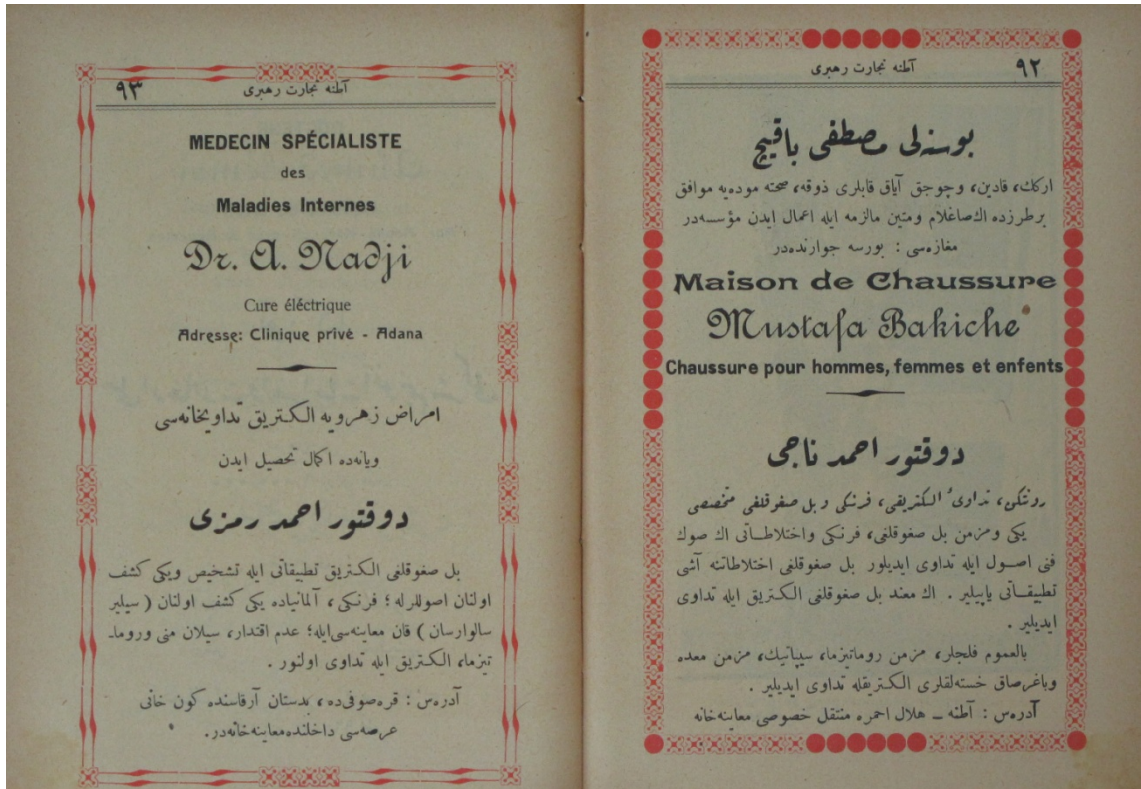 آطنه تجارت رهبری ٩٢
بوسنه‌لی مصطفی باقیچ
ارکك، قادین، وچوجق آیاق قابلری ذوقه، صحته موده‌یه موافق
برطرزده اك صاغلام ومتین مالزمه ایله اعمال ایدن مؤسسه‌در
مغازه‌سی : بورسه جوارنده‌در
Maison de Chaussure
Mustafa Bakiche
Chaussure pour hommes, femmes et enfents
دوقتور احمد ناجی
رونتکن، تداوئ الکتریقی، فرنکی وبل صغوقلغی متخصصی
یکی ومزمن بل صغوقلغی، فرنکی واختلاطـاتی اك صوك
فنی اصـول ایله تداوی ایدیلور بل صغوقلغی اختلاطاتنه آشی
تطبیقـاتی یاپیلیر . اك معند بل صغوقلغی الکتریق ایله تداوی
ایدیلیر .
بالعموم فلجلر، مزمن روماتیزما، سیاتیك، مزمن معده
وباغرصاق خسته‌لقلری الکتریقله تداوی ایدیلیر .
آدره‌س : آطنه ــ هلال احمره منتقل خصوصی معاینه‌خانه
آطنه تجارت رهبری ٩٣
MEDECIN SPÉCIALISTE
des
Maladies Internes
Dr. A. Nadji
Cure éléctrique
Adresse: Clinique privé - Adana
امراض زهرویه الکتریق تداویخانه‌سی
ویانه‌ده اکمال تحصیل ایدن
دوقتور احمد رمزی
بل صغوقلغی الکتریق تطبیقاتی ایله تشخیص ویکی کشف
اولنان اصوللرله ؛ فرنکی، آلمانیاده یکی کشف اولنان ( سیلبر
سالوارسان ) قان معاینه‌سی‌ایله؛ عدم اقتدار، سیلان منی وروما-
تیزما، الکتریق ایله تداوی اولنور .
آدره‌س : قره‌صوفی‌ده، بدستان آرقاسنده کون خانی
عرصه‌سی داخلنده‌معاینه‌خانه‌در.